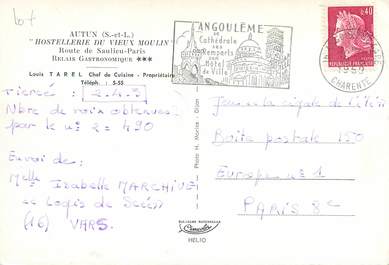 lot
AUTUN (S.-et-L.)
"HOSTELLERIE DU VIEUX MOULIN"
Route de Saulieu-Paris
RELAIS GASTRONOMIQUE ***
Louis TAREL Chef de Cuisine - Propriétaire
Téléph. : 5-55
ANGOULÊME
SA
Cathédrale
SES
Remparts
SON
Hôtel
de Ville
0,40
CHARENTE
tiercé : 2.4.3
Nbre de voix obtenues
par le n° 2 = 490
Envoi de :
Melle Isabelle MARCHIVE
Le Logis de
(16) VARS.
Photo H. Morine - Dijon
Jeu la cigale de l'été
Boite postale 150
Europe n° 1
PARIS 8e
HELIO